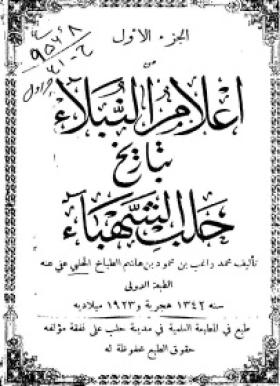 الجزء الاول
من
اعلام النبلاء
بتاريخ
حلب الشهباء
تأليف محمد راغب بن محمود بن هاشم الطباخ الحلبي عفي عنه
الطبعة الاولى
سنه ١٣٤٢ هجرية و ١٩٢٣ ميلاديه
طبع في المطبعة العلمية في مدينة حلب على نفقة مؤلفه
حقوق الطبع محفوظة له